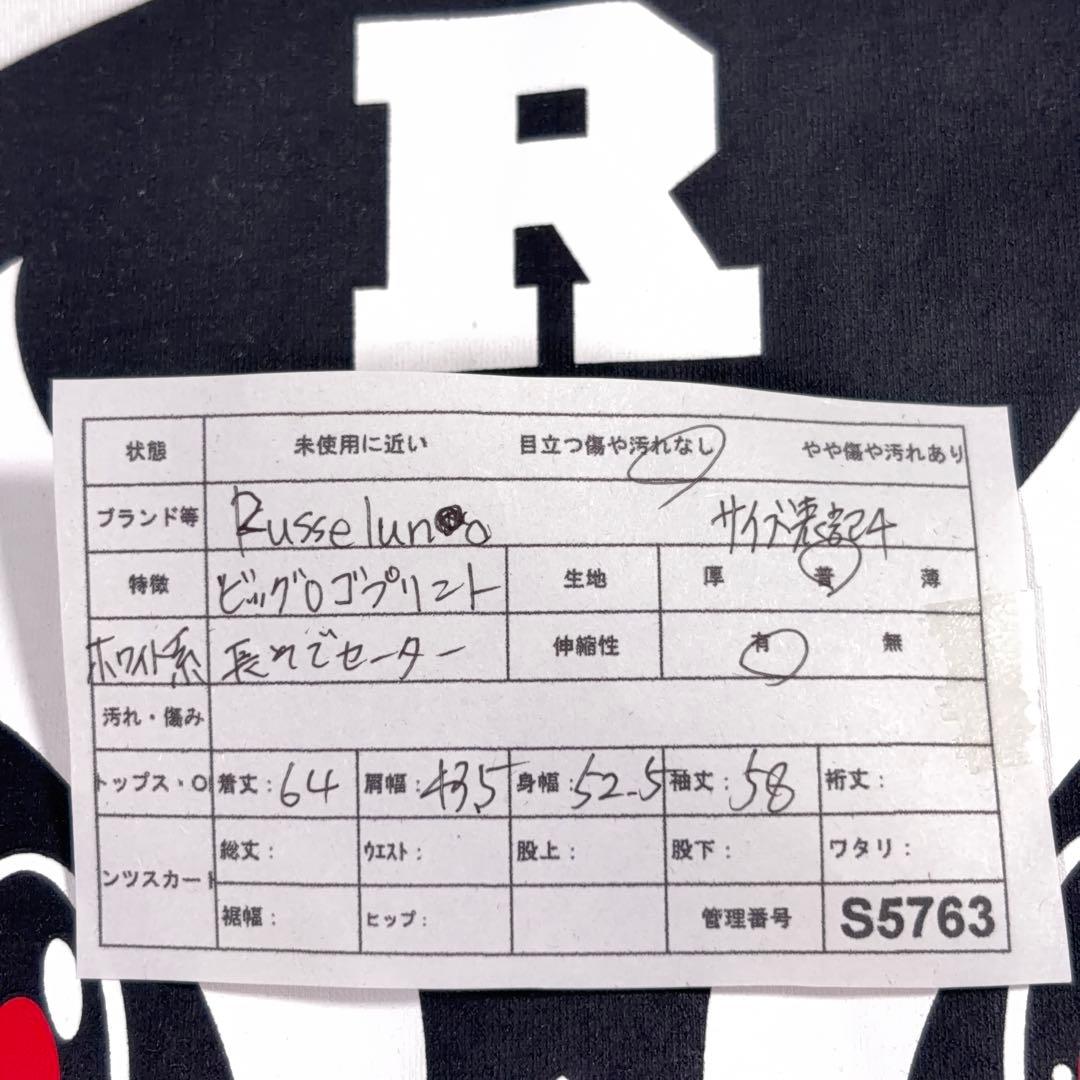 R
状態 未使用に近い 目立つ傷や汚れなし やや傷や汚れあり
ブランド等 Russeluno サイズ表記4
特徴 ビッグロゴプリント 生地 厚 普 薄
ホワイト系 長そでセーター 伸縮性 有 無
汚れ・傷み
トップス・O 着丈：64 肩幅：43.5 身幅：52.5 袖丈：58 裄丈：
ンツスカート 総丈： ウエスト： 股上： 股下： ワタリ：
裾幅： ヒップ： 管理番号 S5763